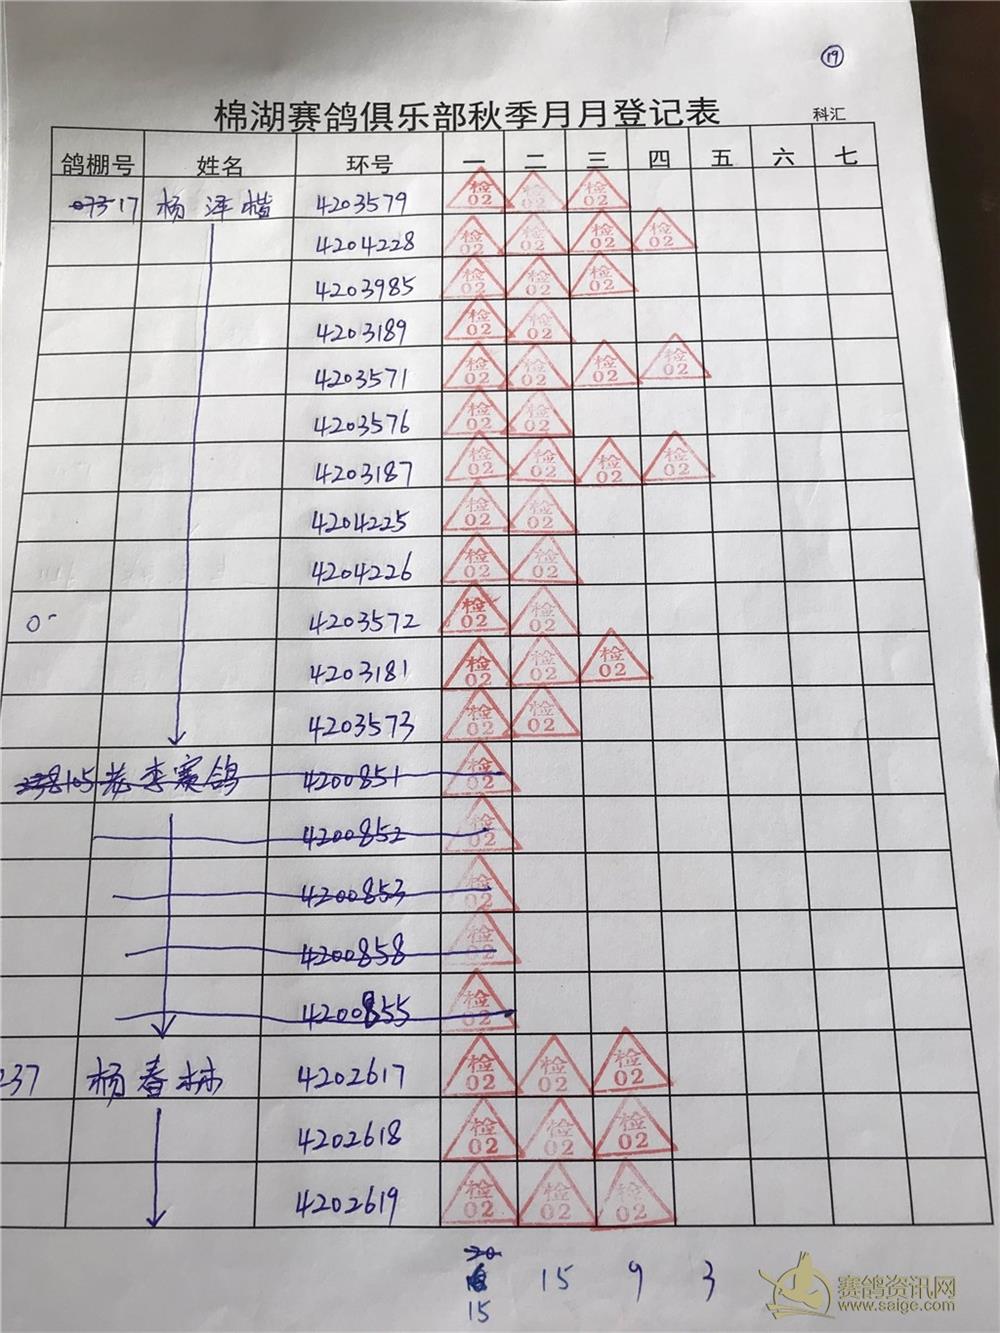 19
棉湖赛鸽俱乐部秋季月月登记表 科汇
鸽棚号 姓名 环号 一 二 三 四 五 六 七
07317 杨泽楷 4203579 检02 检02 检02
4204228 检02 检02 检02 检02
4203985 检02 检02 检02
4203189 检02 检02
4203571 检02 检02 检02 检02
4203576 检02 检02
4203187 检02 检02 检02 检02
4204225 检02 检02
4204226 检02 检02
4203572 检02 检02
4203181 检02 检02 检02
4203573 检02 检02
105 李赛鸽 4200851 检02
4200852 检02
4200853 检02
4200858 检02
4200855 检02
237 杨春林 4202617 检02 检02 检02
4202618 检02 检02 检02
4202619 检02 检02 检02
20
15 15 9 3
赛鸽资讯网
www.saige.com